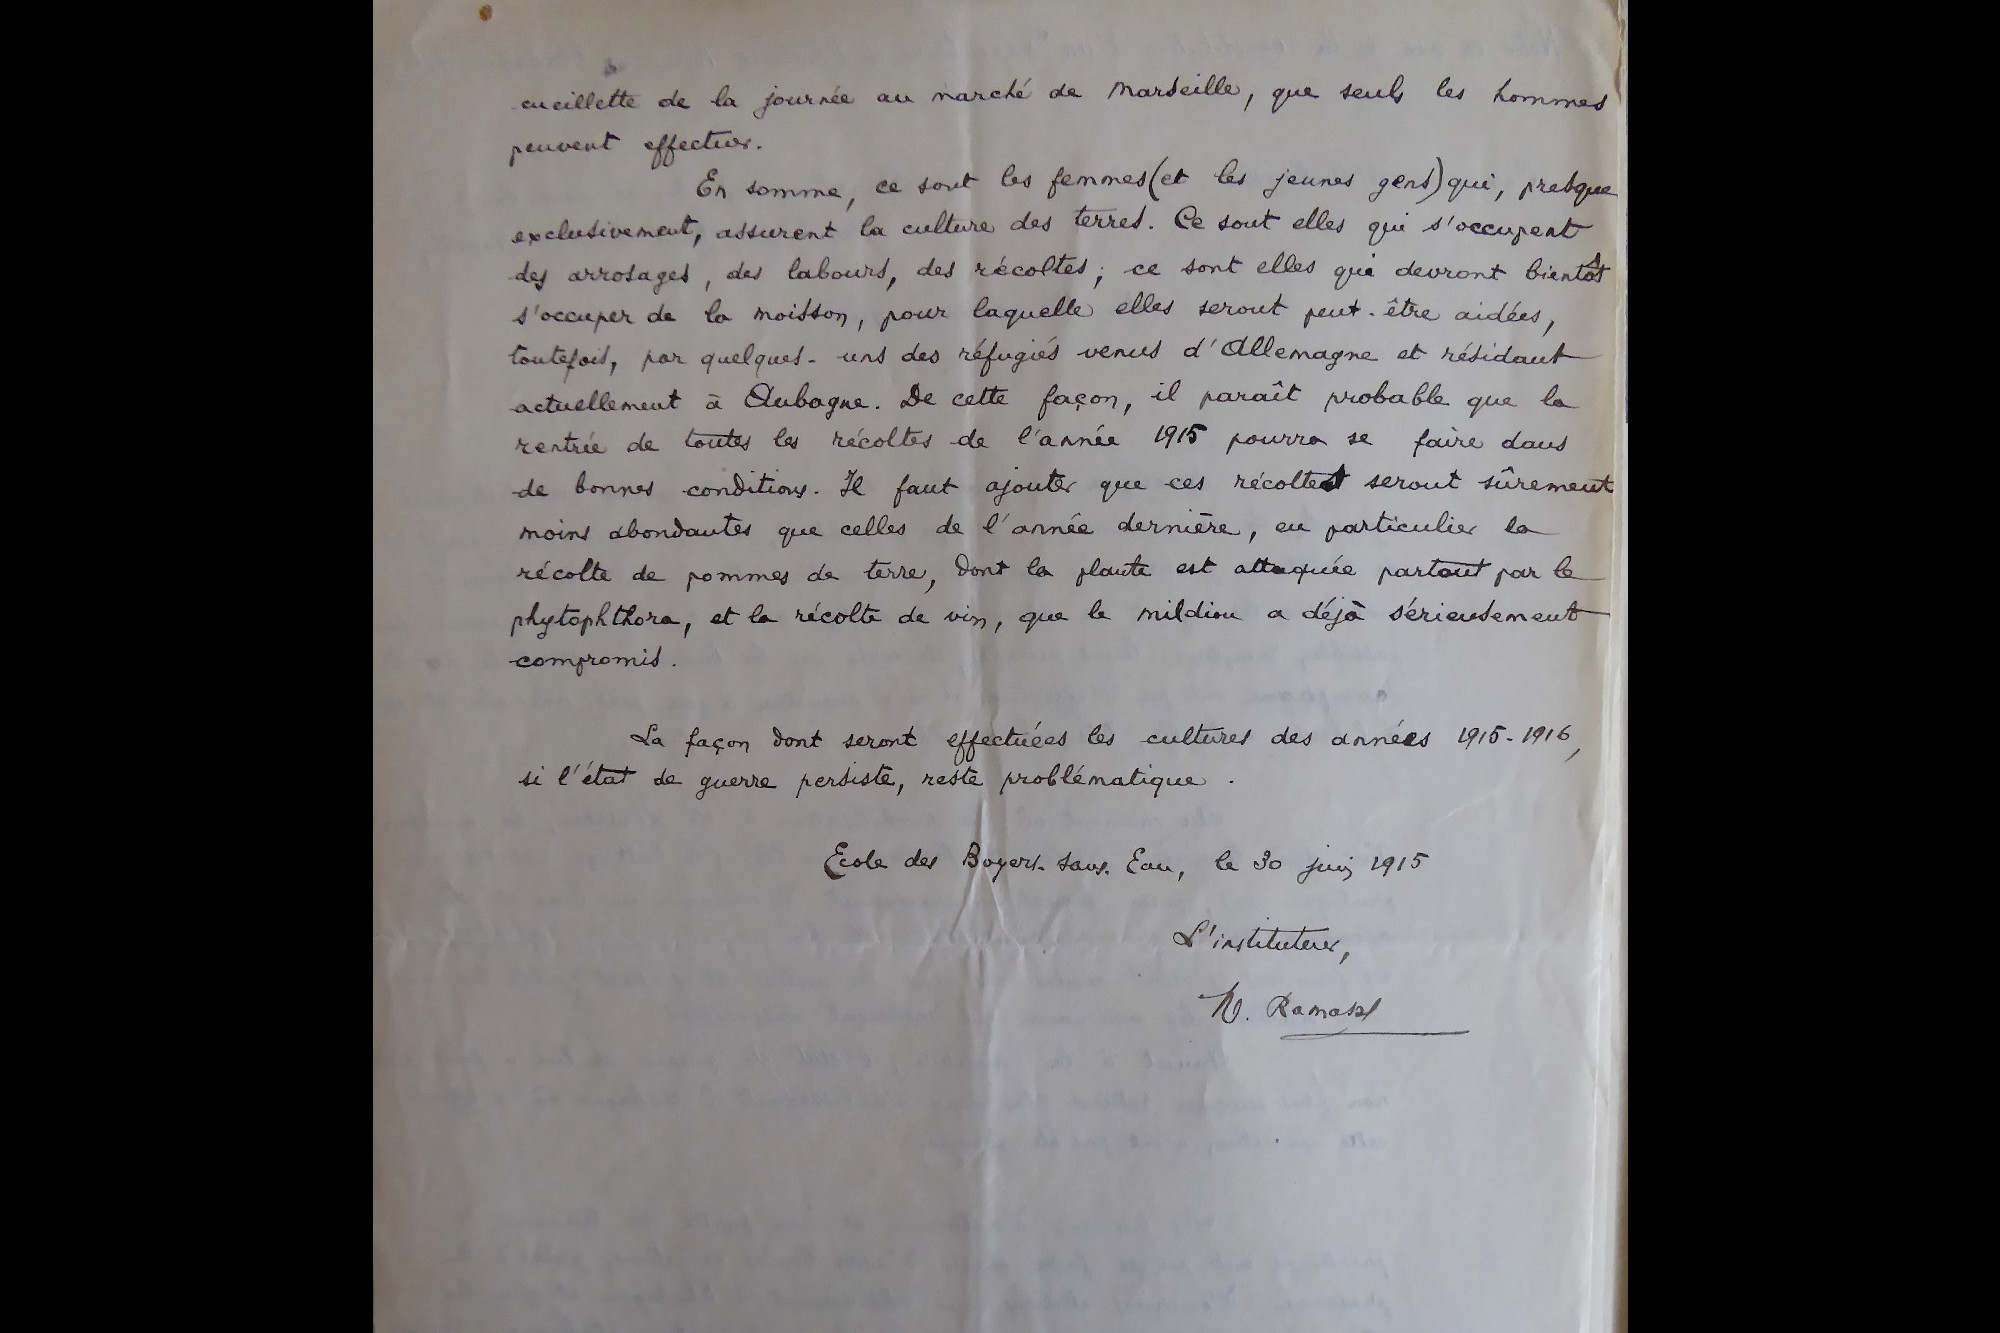 cueillette de la journée au marché de Marseille, que seuls les hommes
peuvent effectuer.
En somme, ce sont les femmes (et les jeunes gens) qui, presque
exclusivement, assurent la culture des terres. Ce sont elles qui s'occupent
des arrosages, des labours, des récoltes; ce sont elles qui devront bientôt
s'occuper de la moisson, pour laquelle elles seront peut-être aidées,
toutefois, par quelques-uns des réfugiés venus d'Allemagne et résidant
actuellement à Aubagne. De cette façon, il paraît probable que la
rentrée de toutes les récoltes de l'année 1915 pourra se faire dans
de bonnes conditions. Il faut ajouter que ces récoltes seront sûrement
moins abondantes que celles de l'année dernière, en particulier la
récolte de pommes de terre, dont la plante est attaquée partout par le
phytophthora, et la récolte de vin, que le mildiou a déjà sérieusement
compromis.
La façon dont seront effectuées les cultures des années 1915-1916,
si l'état de guerre persiste, reste problématique.
Ecole des Boyers-sans-Eau, le 30 juin 1915
L'instituteur,